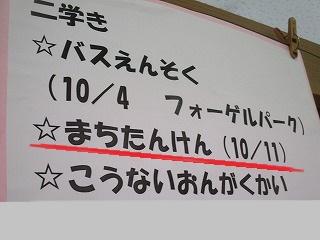 二学き
☆バスえんそく
(10/4 フォーゲルパーク)
☆まちたんけん(10/11)
☆こうないおんがくかい